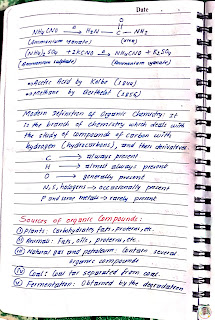 Date
O
||
NH4CNO Δ→ H2N — C — NH2
(Ammonium cyanate) (urea)
(NH4)2SO4 + 2KCNO Δ→ NH4CNO + K2SO4
(Ammonium sulphate) (Ammonium cyanate)
Acetic Acid by Kolbe (1845)
Methane by Berthelot (1856)
Modern Definition of Organic Chemistry: It
is the branch of chemistry which deals with
the study of compounds of carbon with
hydrogen (hydrocarbons), and their derivatives.
C → always present
H → almost always present
O → generally present
N, S, halogens → occasionally present
P and some metals → rarely present
Sources of Organic Compounds:
i) Plants: Carbohydrates, fats, proteins, etc.
ii) Animals: Fats, oils, proteins, etc.
iii) Natural gas and petroleum: Contain several
organic compounds
iv) Coal: Coal tar separated from coal.
v) Fermentation: Obtained by the degradation